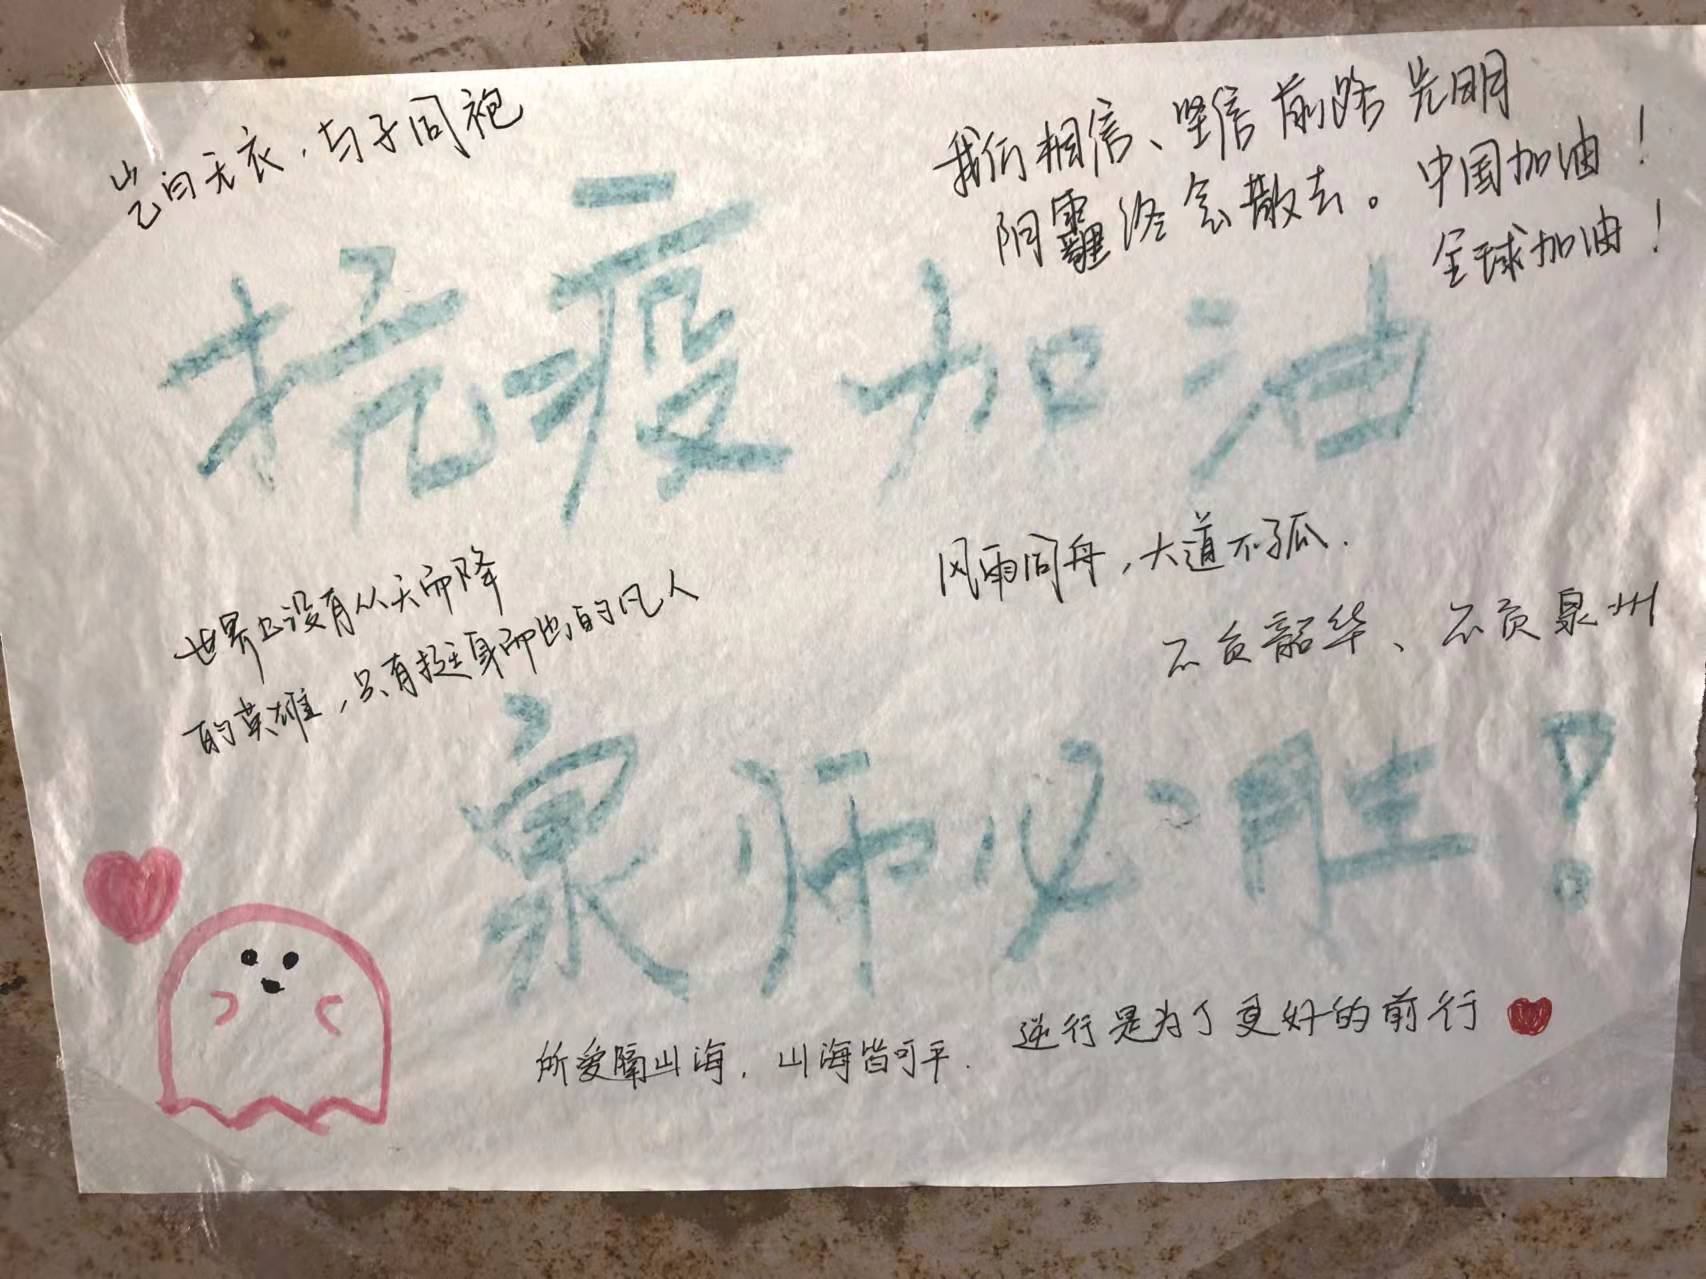 岂曰无衣，与子同袍
我们相信、坚信前路光明
阴霾终会散去。中国加油！
全球加油！
抗疫加油
世界上没有从天而降
的英雄，只有挺身而出的凡人
风雨同舟，大道不孤.
不负韶华、不负泉州
泉师必胜！
所爱隔山海，山海皆可平.
逆行是为了更好的前行